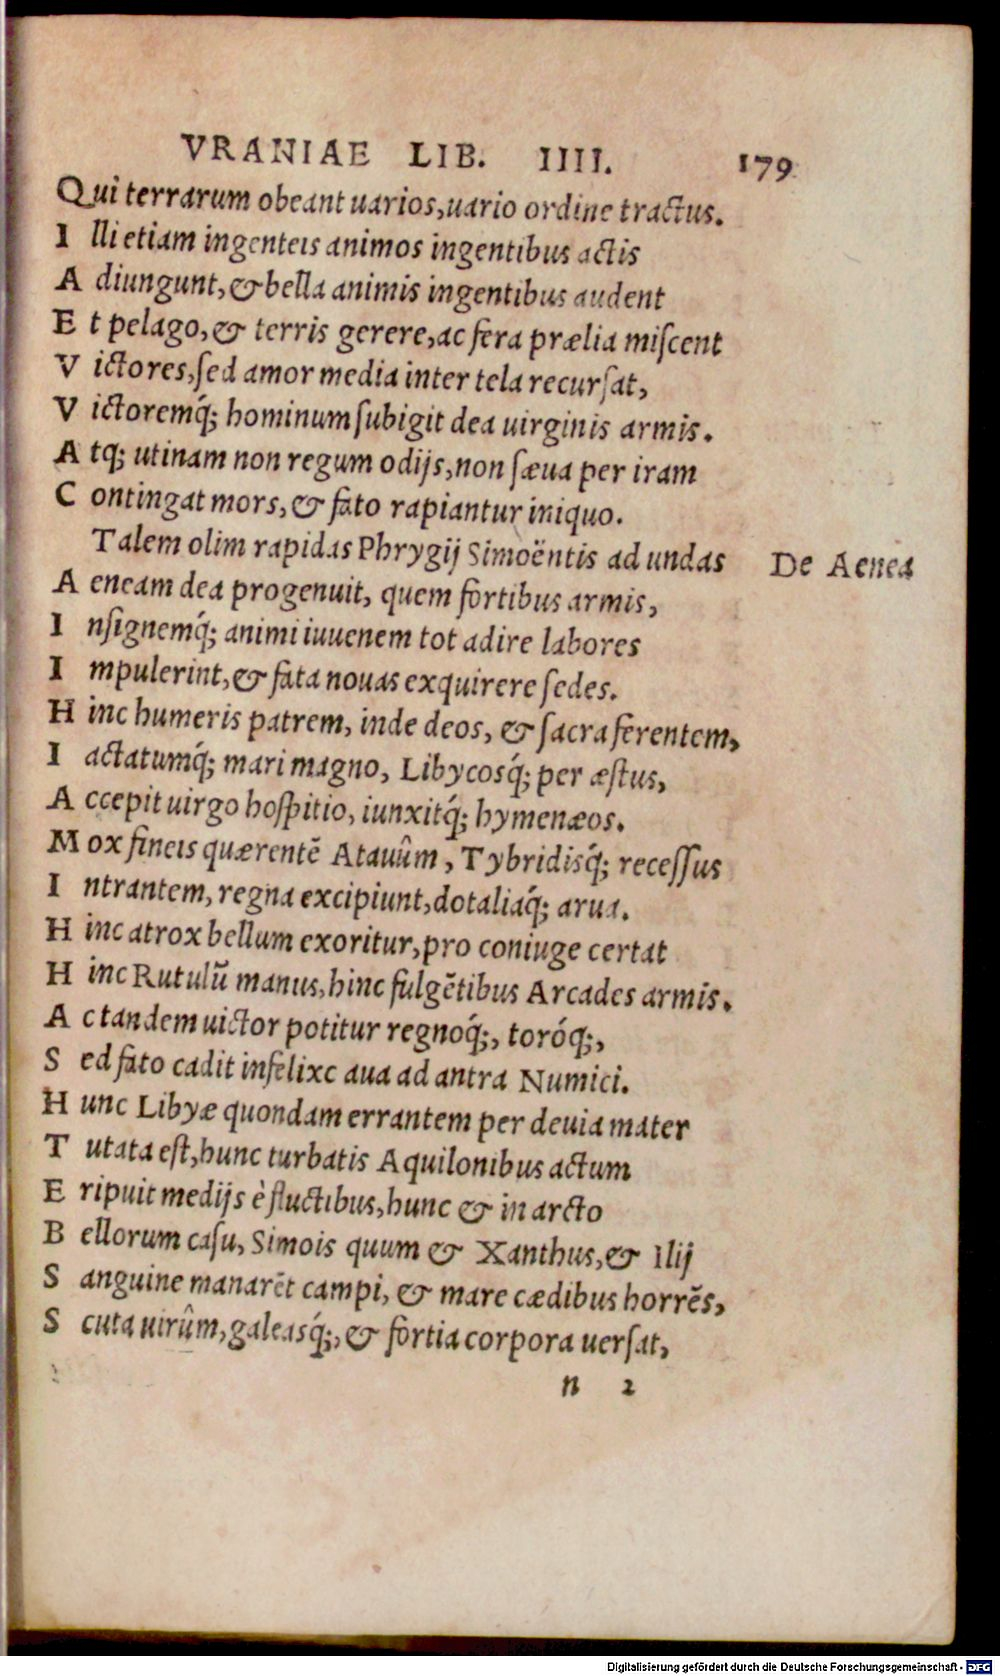 VRANIAE LIB. IIII. 179
Qui terrarum obeant uarios, uario ordine tractus.
I lli etiam ingenteis animos ingentibus actis
A diungunt, & bella animis ingentibus audent
E t pelago, & terris gerere, ac fera prælia miſcent
V ictores, ſed amor media inter tela recurſat,
V ictoremq́; hominum ſubigit dea uirginis armis.
A tq; utinam non regum odijs, non ſæua per iram
C ontingat mors, & fato rapiantur iniquo.
Talem olim rapidas Phrygij Simoëntis ad undas De Aenea
A eneam dea progenuit, quem fortibus armis,
I nſignemq́; animi iuuenem tot adire labores
I mpulerint, & fata nouas exquirere ſedes.
H inc humeris patrem, inde deos, & ſacra ferentem,
I actatumq́; mari magno, Libycosq́; per æſtus,
A ccepit uirgo hoſpitio, iunxitq́; hymenæos.
M ox fineis quærentē Atauûm, Tybridisq́; receſſus
I ntrantem, regna excipiunt, dotaliaq́; arua.
H inc atrox bellum exoritur, pro coniuge certat
H inc Rutulũ manus, hinc fulgētibus Arcades armis.
A c tandem uictor potitur regnoq́;, toróq;,
S ed fato cadit infelix caua ad antra Numici.
H unc Libyæ quondam errantem per deuia mater
T utata eſt, hunc turbatis Aquilonibus actum
E ripuit medijs è fluctibus, hunc & in arcto
B ellorum caſu, Simois quum & Xanthus, & Ilij
S anguine manarēt campi, & mare cædibus horrēs,
S cuta uirûm, galeasq́;, & fortia corpora uerſat,
n 2
Digitalisierung gefördert durch die Deutsche Forschungsgemeinschaft - DFG